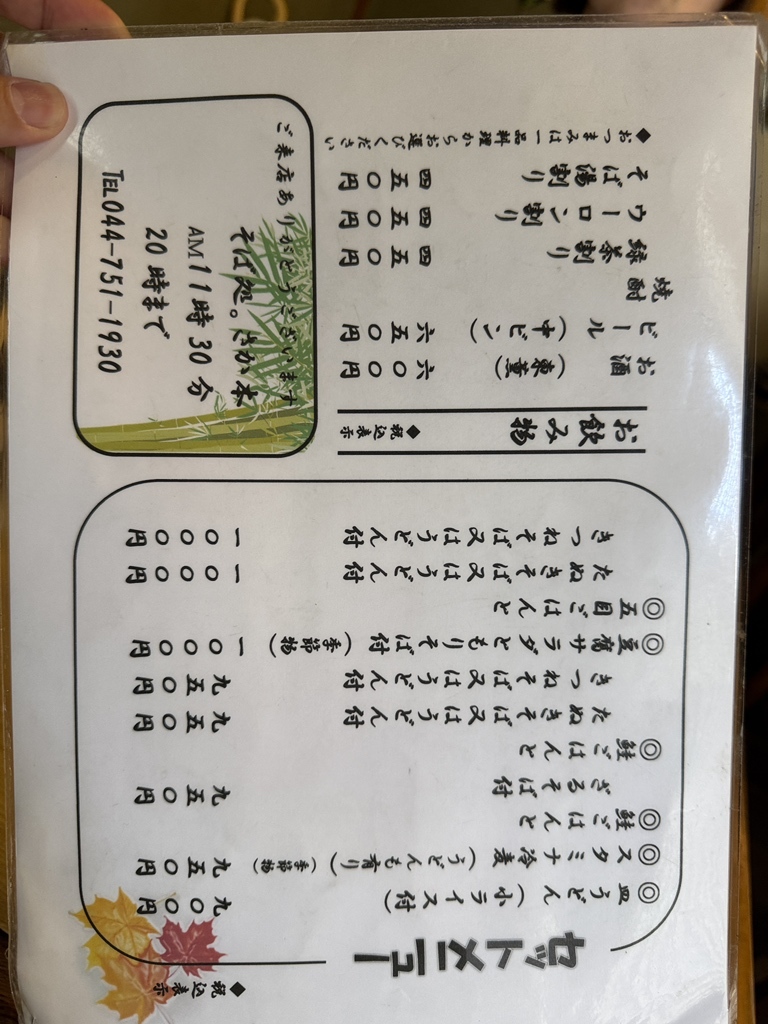 セットメニュー
◆税込表示
◎皿うどん(小ライス付) 九〇〇円
◎スタミナ冷麦(うどんも有り)(季節物) 九五〇円
◎鮭ごはんと
ざるそば付 九五〇円
◎鮭ごはんと
たぬきそば又はうどん付 九五〇円
きつねそば又はうどん付 九五〇円
◎豆腐サラダともりそば付(季節物) 一〇〇〇円
◎五目ごはんと
たぬきそば又はうどん付 一〇〇〇円
きつねそば又はうどん付 一〇〇〇円
お飲み物 ◆税込表示
お酒(東薫) 六〇〇円
ビール(中ビン) 六五〇円
焼酎
緑茶割り 四五〇円
ウーロン割り 四五〇円
そば湯割り 四五〇円
◆おつまみは一品料理からお選びください
ご来店ありがとうございます
そば処。さか本
AM11時30分
20時まで
TEL044-751-1930